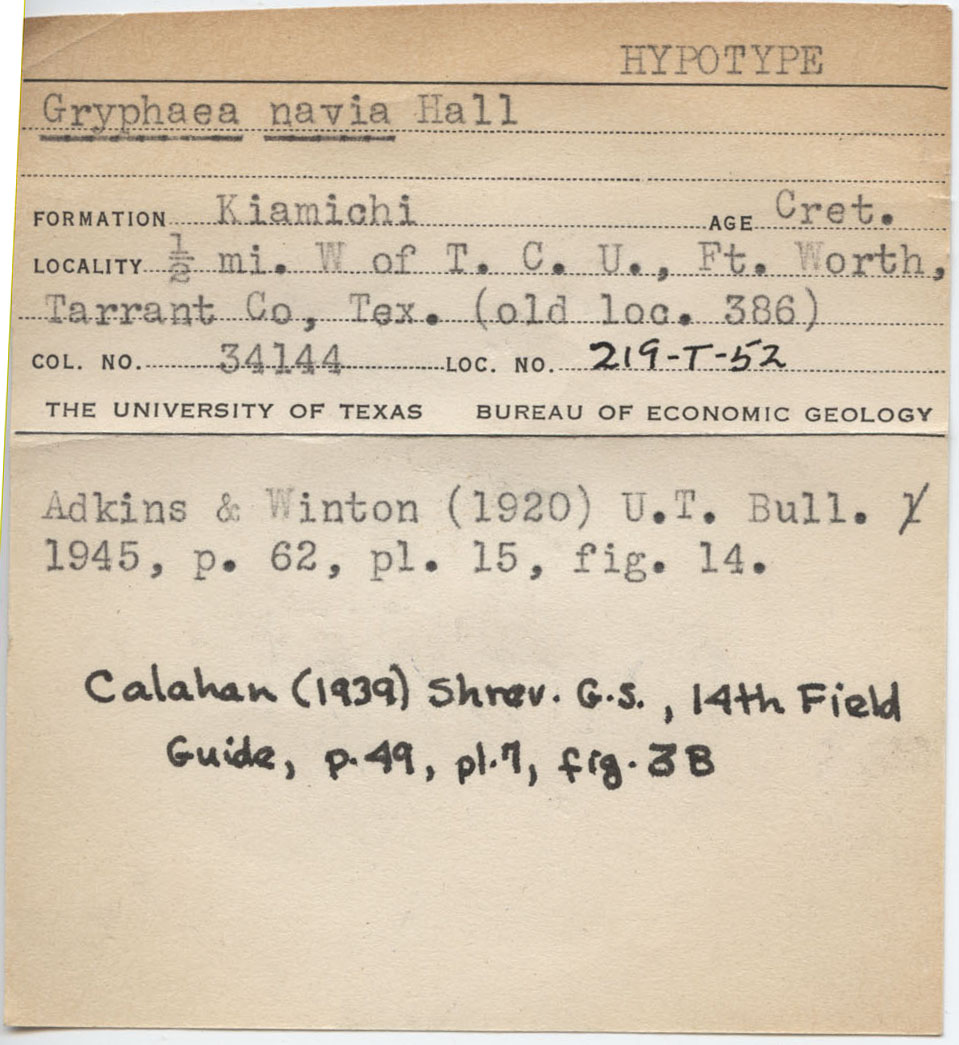 HYPOTYPE
Gryphaea navia Hall
FORMATION Kiamichi AGE Cret.
LOCALITY ½ mi. W of T. C. U., Ft. Worth,
Tarrant Co, Tex. (old loc. 386)
COL. NO. 34144 LOC. NO. 219-T-52
THE UNIVERSITY OF TEXAS BUREAU OF ECONOMIC GEOLOGY
Adkins & Winton (1920) U.T. Bull.
1945, p. 62, pl. 15, fig. 14.
Calahan (1939) Shrev. G.S., 14th Field
Guide, p.49, pl.7, fig. 3B